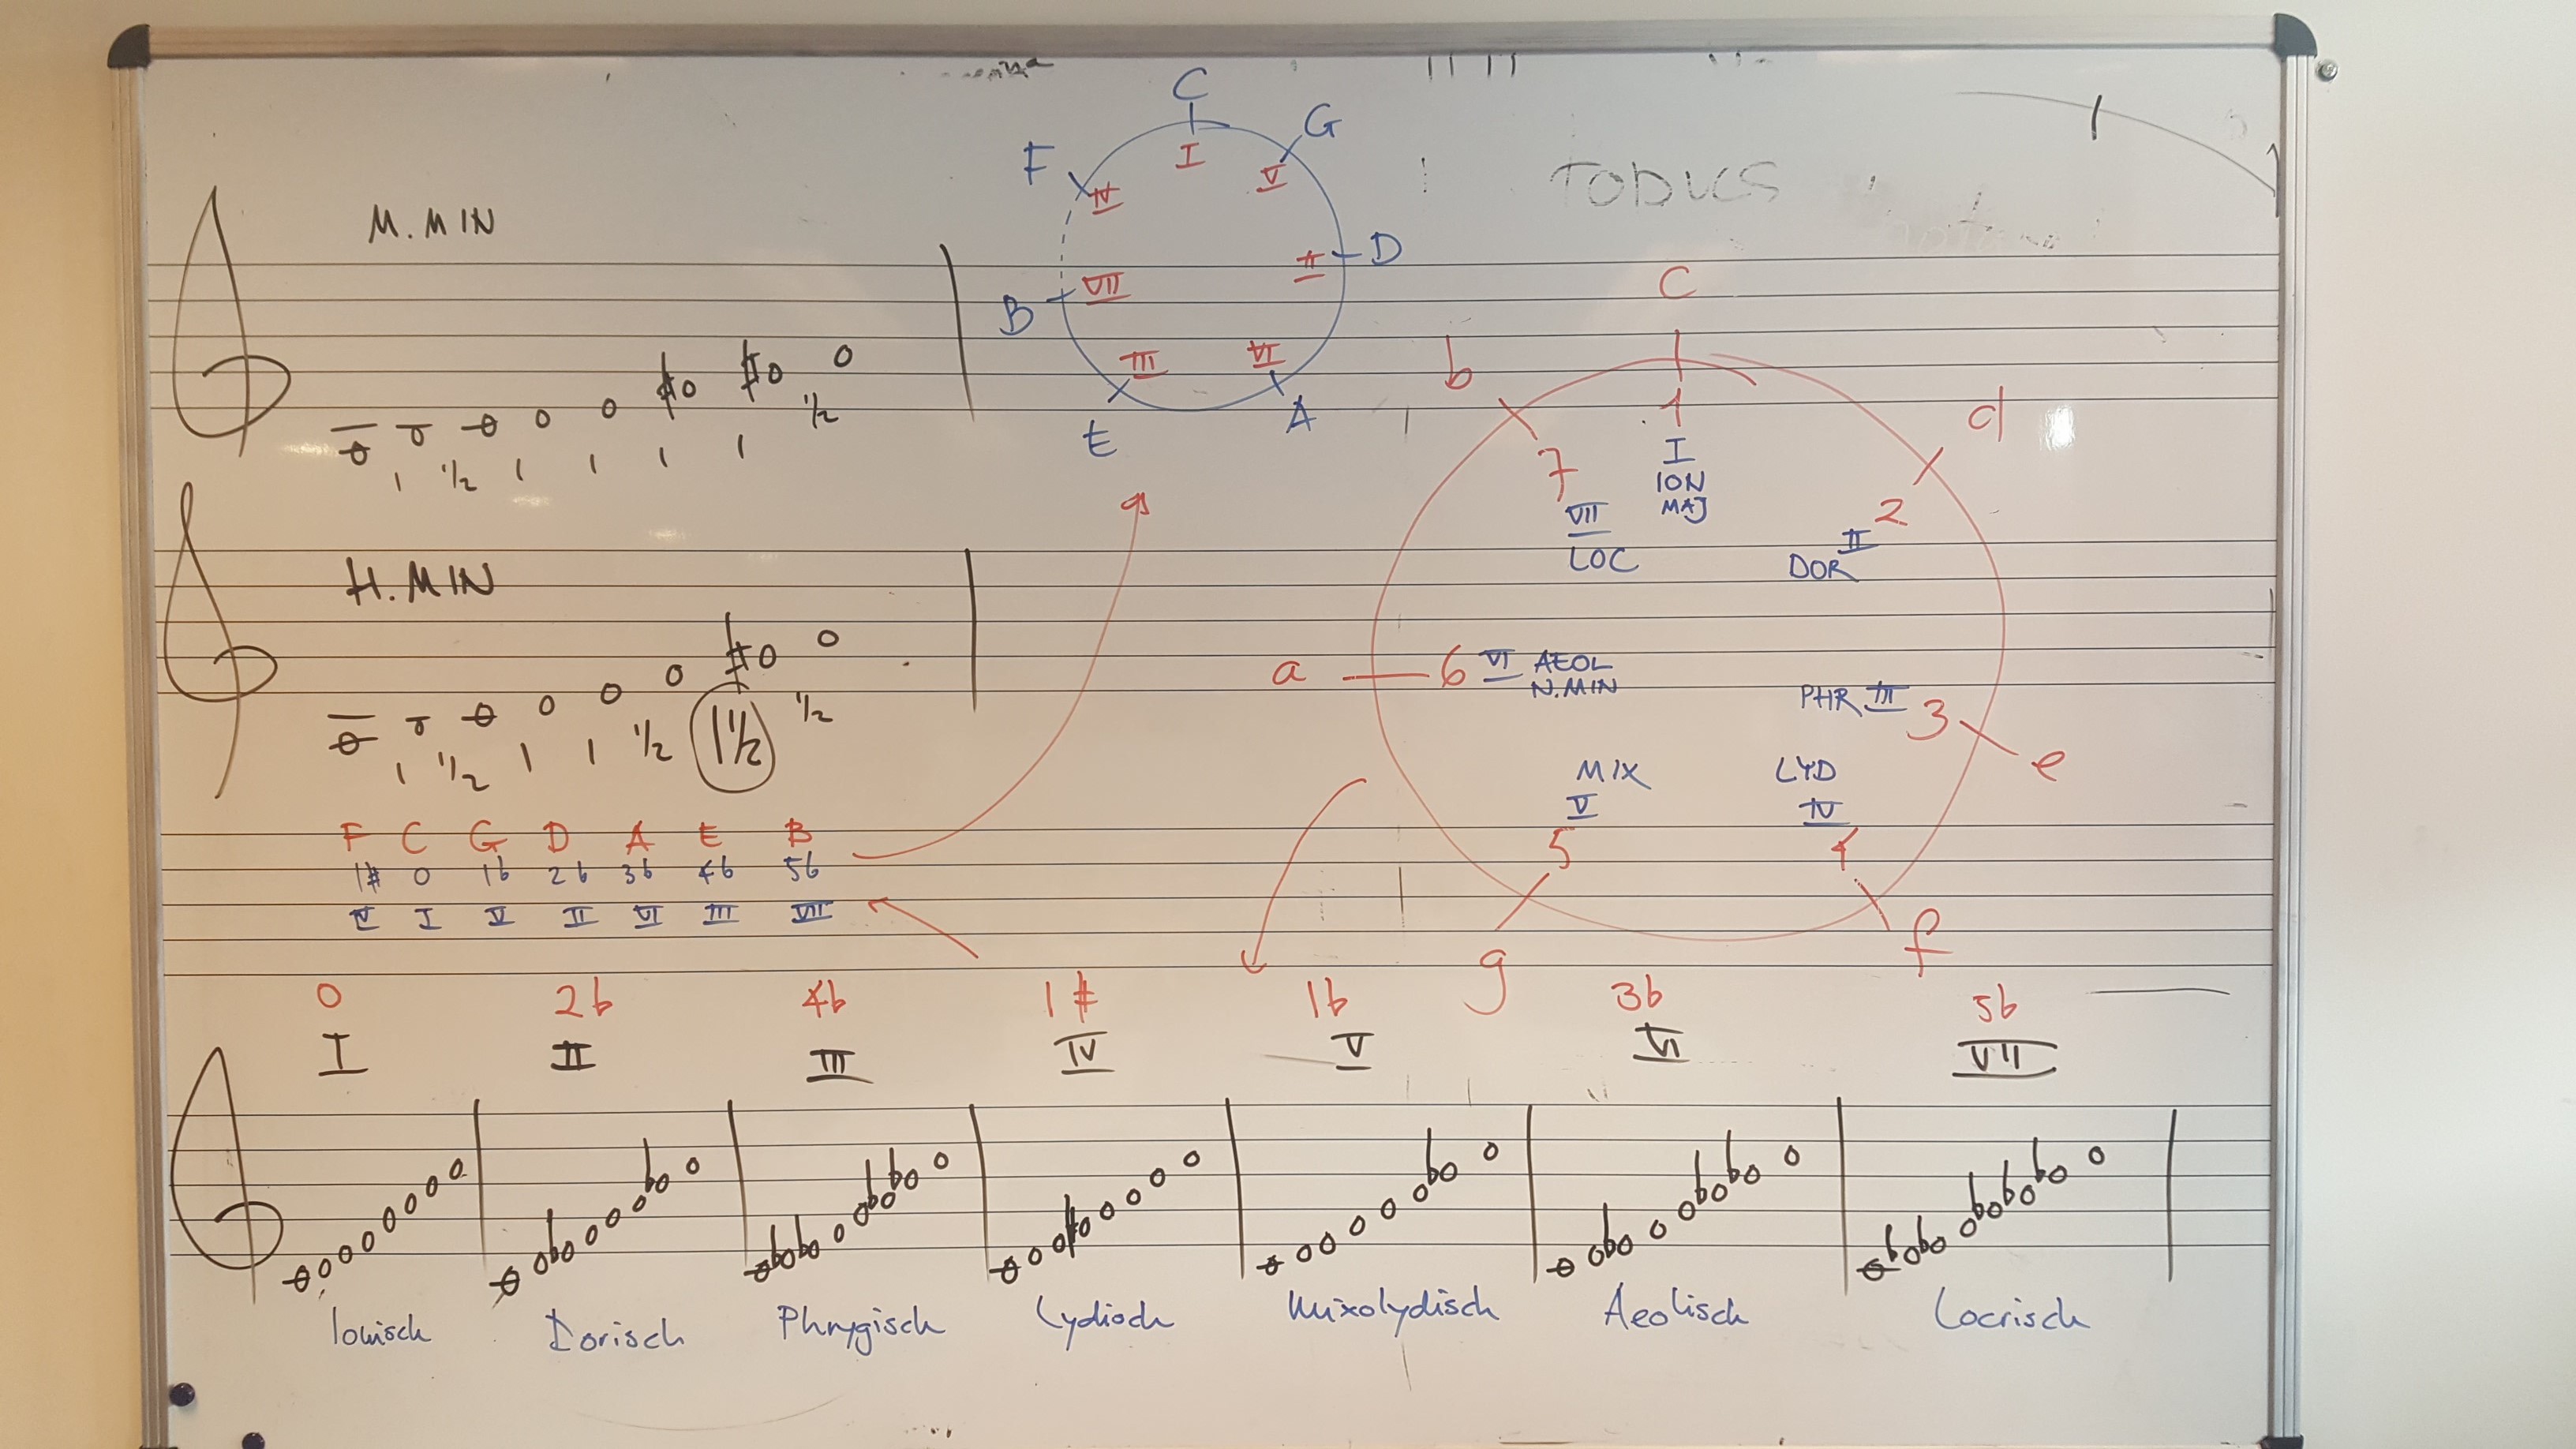 C
F G
I
IV V
TODUCS
M.MIN
II D
VII
B
III VI
E A
1 ½ 1 1 1 1 ½
C
b d
1
7 I
ION
MAJ
2
VII
LOC
II
DOR
a 6 VI AEOL
N.MIN
PHR III 3 e
MIX LYD
V IV
5 4
g f
H.MIN
1 ½ 1 1 ½ 1½ ½
F C G D A E B
1# 0 1b 2b 3b 4b 5b
IV I V II VI III VII
0 2b 4b 1# 1b 3b 5b
I II III IV V VI VII
Ionisch Dorisch Phrygisch Lydisch Mixolydisch Aeolisch Locrisch